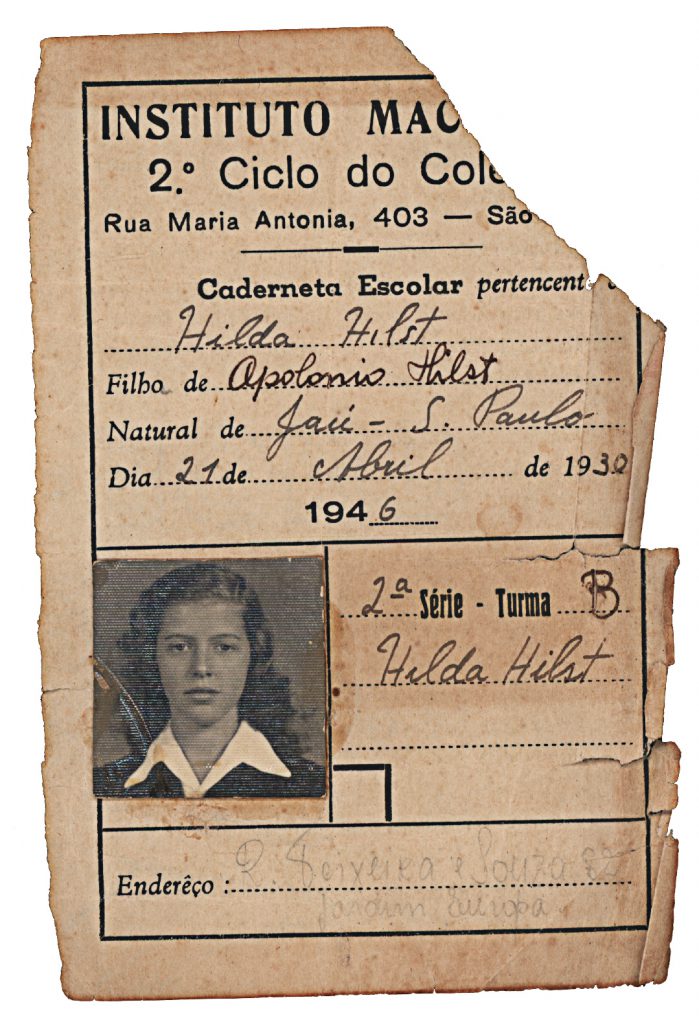 INSTITUTO MAC
2.º Ciclo do Cole
Rua Maria Antonia, 403 — São
Caderneta Escolar pertencent
Hilda Hilst
Filho de Apolonio Hilst
Natural de Jaú - S. Paulo
Dia 21 de Abril de 1930
1946
2ª Série - Turma B
Hilda Hilst
Enderêço: R. Teixeira e Souza
Jardim Europa